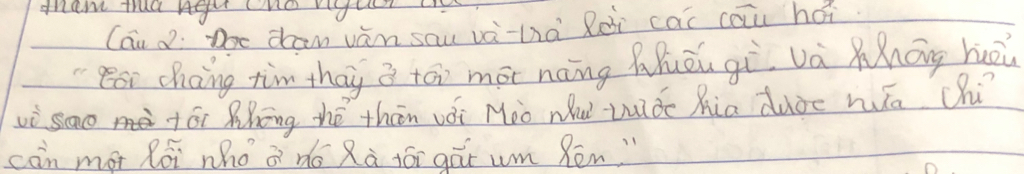 tham thía ngụ cho người đọc.
Câu 2: Đọc đoạn văn sau và trả lời các câu hỏi
"Tôi chẳng tìm thấy ở tôi một năng khiếu gì. Và không hiểu
vì sao mà tôi không thể thân với Mèo như trước kia được nữa. Chỉ
cần một lỗi nhỏ ở nó là tôi gắt um lên."